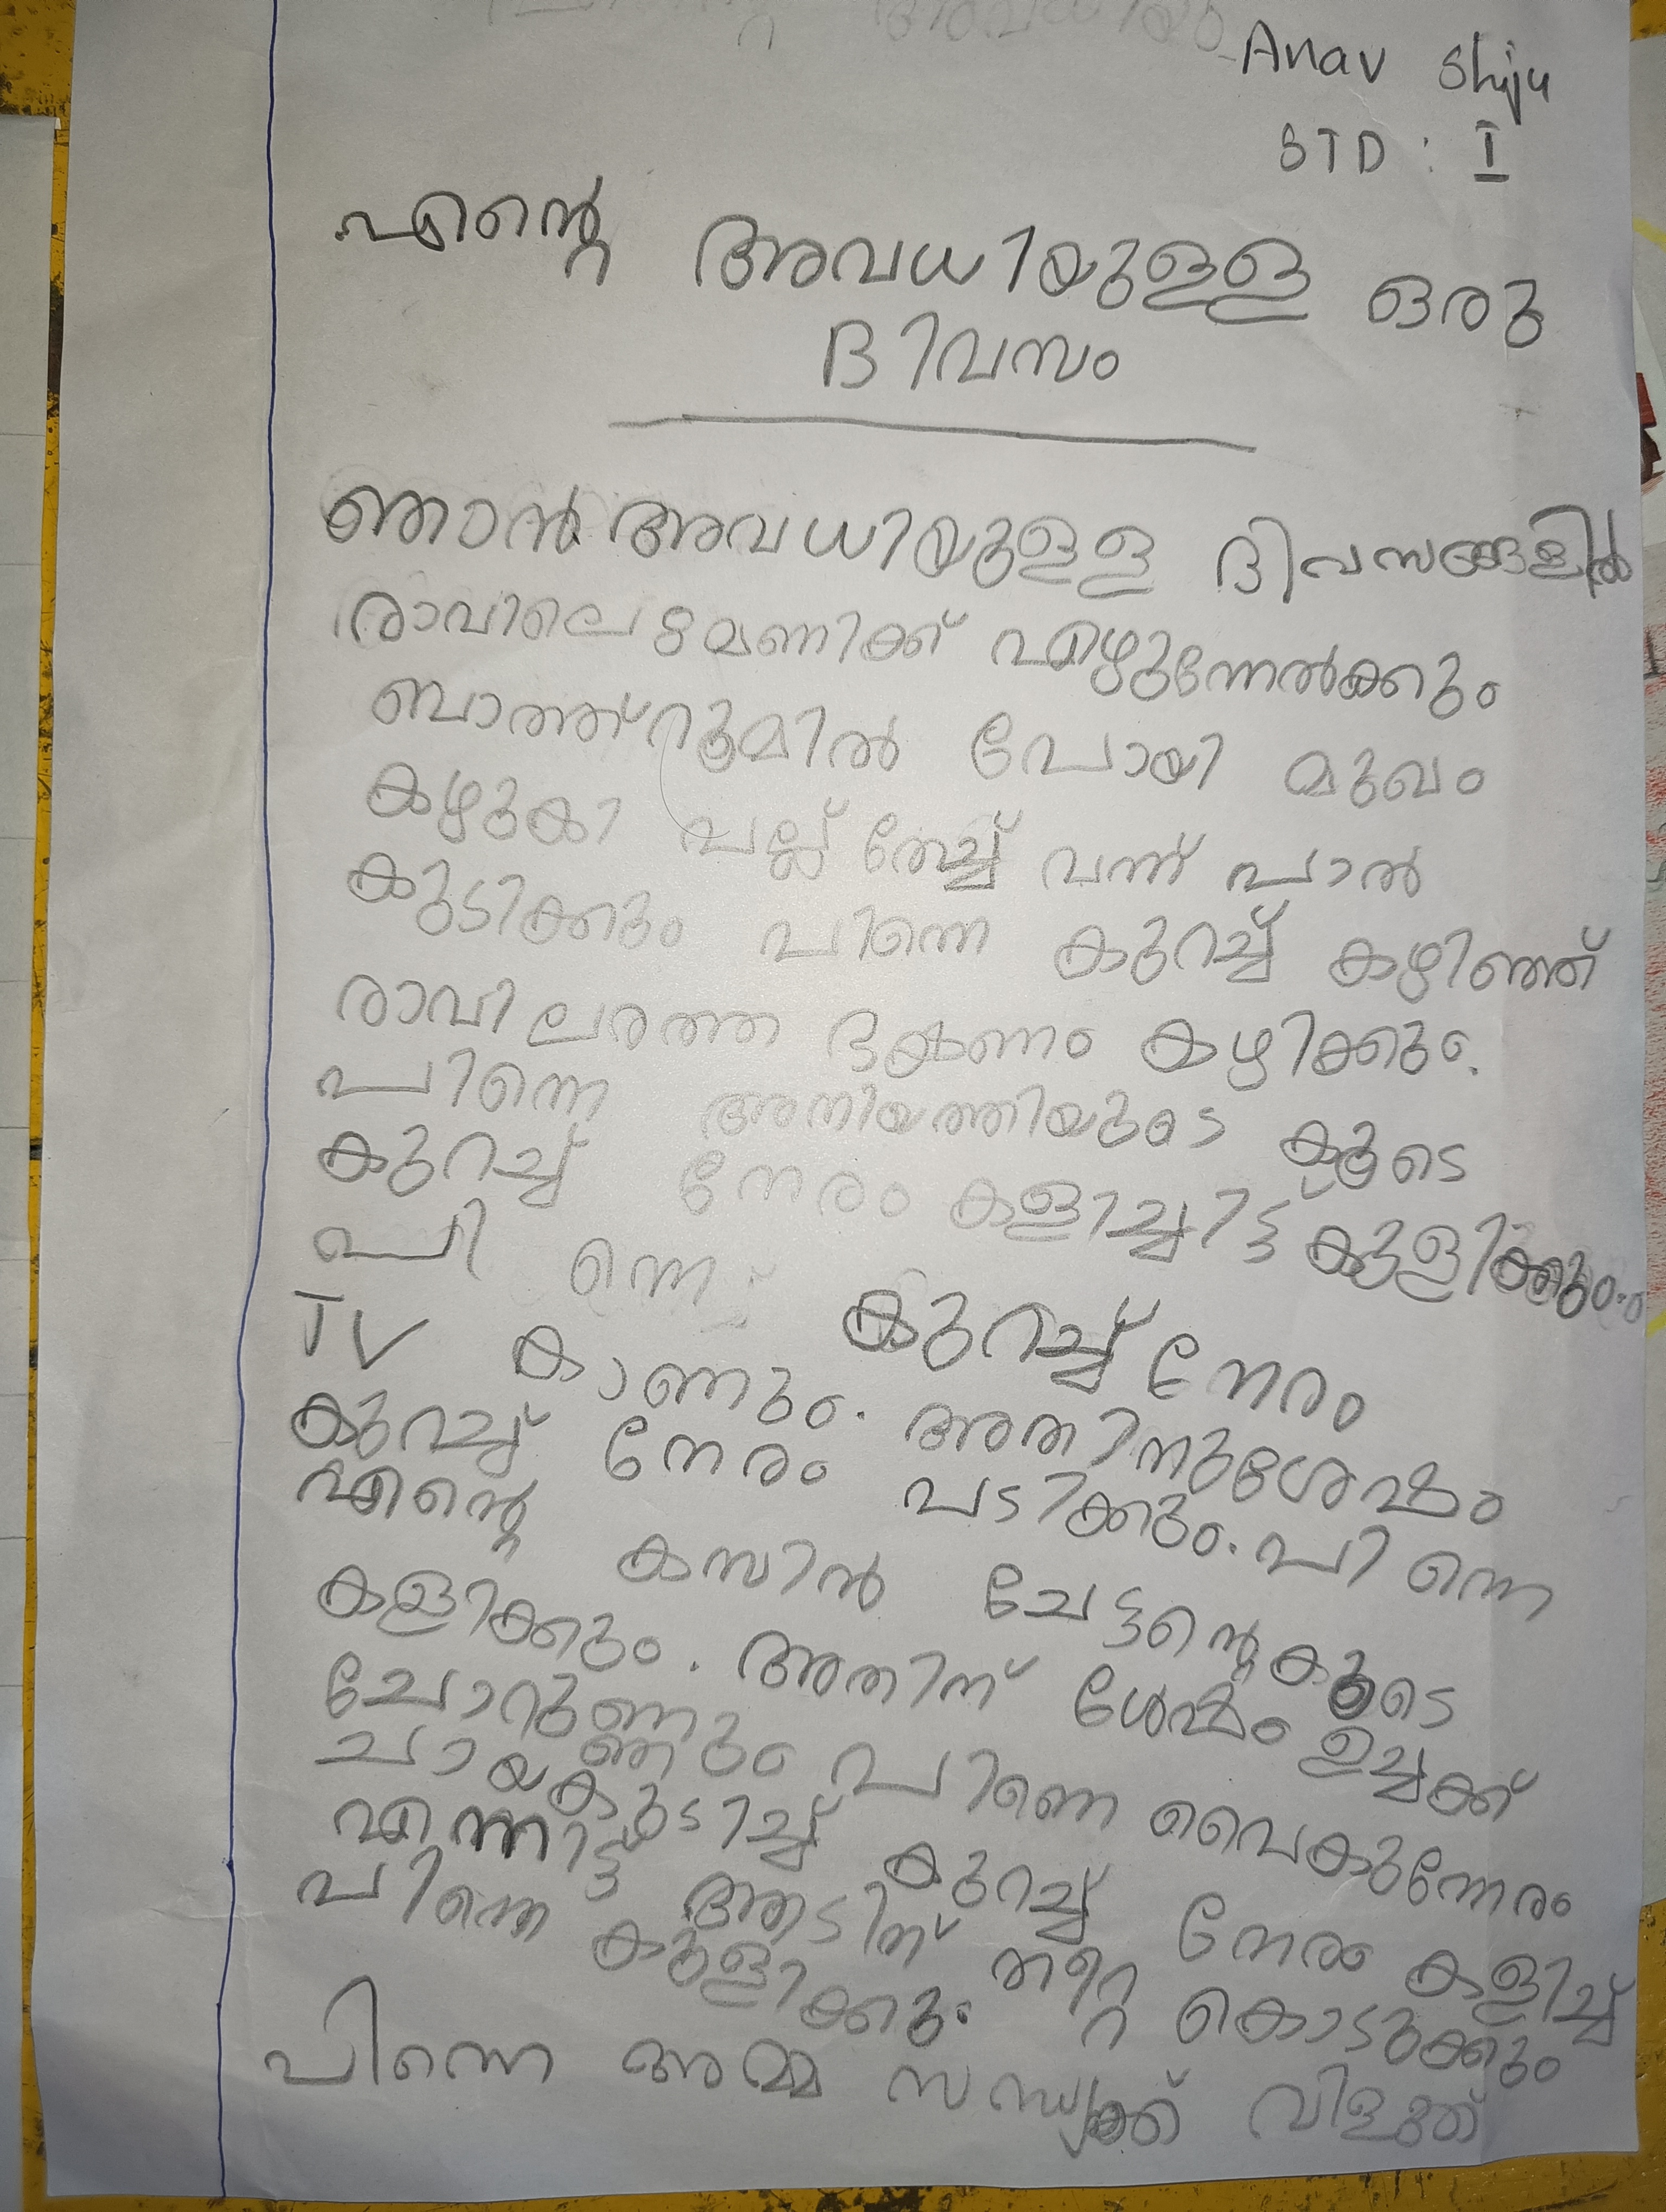 Anav Shiju
STD : I
എന്റെ അവധിയുള്ള ഒരു
ദിവസം
ഞാൻ അവധിയുള്ള ദിവസങ്ങളിൽ
രാവിലെ 8 മണിക്ക് എഴുന്നേൽക്കും
ബാത്ത്റൂമിൽ പോയി മുഖം
കഴുകി പല്ല് തേച്ച് വന്ന് പാൽ
കുടിക്കും പിന്നെ കുറച്ച് കഴിഞ്ഞ്
രാവിലത്തെ ഭക്ഷണം കഴിക്കും.
പിന്നെ അനിയത്തിയുടെ കൂടെ
കുറച്ച് നേരം കളിച്ചിട്ട് കുളിക്കും.
പിന്നെ കുറച്ച് നേരം
TV കാണും. അതിനുശേഷം
കുറച്ച് നേരം പടിക്കും. പിന്നെ
എന്റെ കസിൻ ചേട്ടന്റെ കൂടെ
കളിക്കും. അതിന് ശേഷം ഉച്ചക്ക്
ചോറുണ്ണും പിന്നെ വൈകുന്നേരം
ചായ കുടിച്ച് കുറച്ച് നേരം കളിച്ച്
എന്നിട്ട് ആടിന് തീറ്റ കൊടുക്കും
പിന്നെ കുളിക്കും.
പിന്നെ അമ്മ സന്ധ്യക്ക് വിളക്ക്